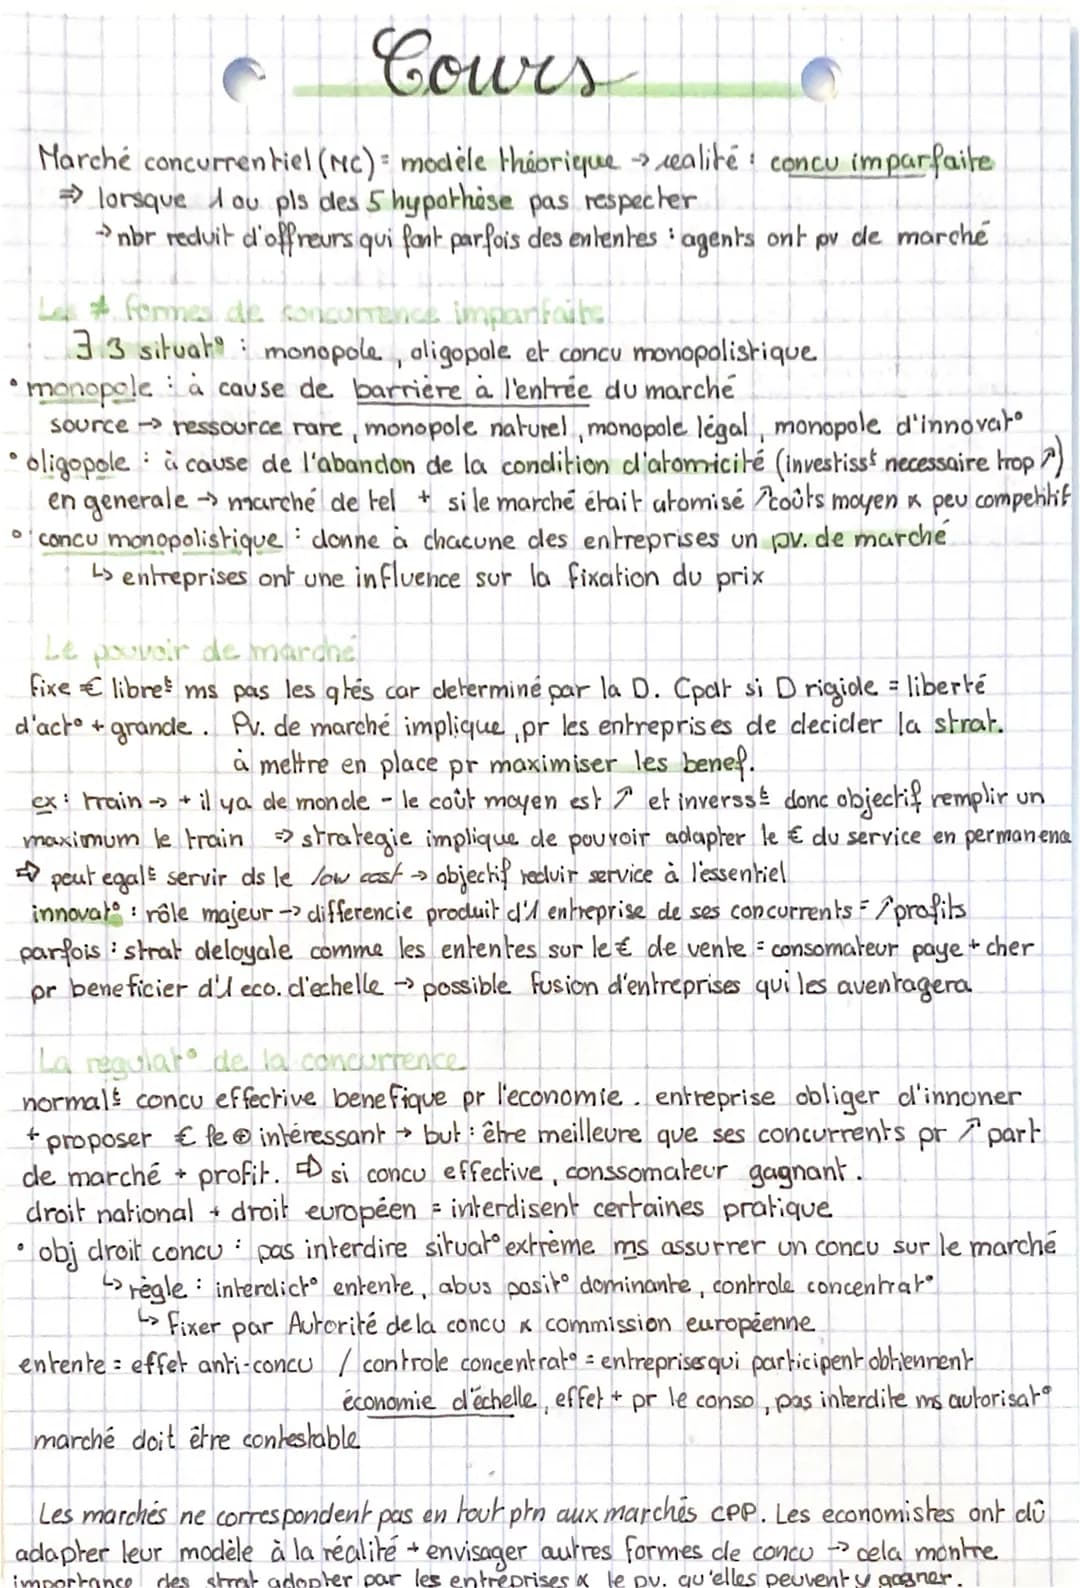 Cours
Marché concurrentiel (MC) = modèle théorique → realité : concu imparfaite
⇒ lorsque 1 ou pls des 5 hypothèse pas respecter
→ nbr reduit d'offreurs qui font parfois des ententes : agents ont pv de marché
Les ≠ formes de concurrence imparfaite
∃ 3 situat° : monopole, oligopole et concu monopolistique
• monopole : à cause de barrière à l'entrée du marché
source → ressource rare, monopole naturel, monopole légal, monopole d'innovat°
• oligopole : à cause de l'abandon de la condition d'atomicité (investisst necessaire trop ↗)
en generale → marché de tel + si le marché était atomisé ↗ coûts moyen & peu competitif
• concu monopolistique : donne à chacune des entreprises un pv. de marché
↳ entreprises ont une influence sur la fixation du prix
Le pouvoir de marché
fixe € libret ms pas les qtés car determiné par la D. Cpdt si D rigide = liberté
d'act° + grande. Pv. de marché implique, pr les entreprises de decider la strat.
à mettre en place pr maximiser les benef.
ex : train → + il ya de monde - le coût moyen est ↗ et inversst donc objectif remplir un
maximum le train ⇒ strategie implique de pouvoir adapter le € du service en permanena
⇒ peut egalt servir ds le low cost → objectif reduir service à l'essentiel
innovat° : rôle majeur → differencie produit d'1 entreprise de ses concurrents = ↗ profits
parfois : strat deloyale comme les ententes sur le € de vente = consomateur paye + cher
pr beneficier d'1 eco. d'echelle → possible fusion d'entreprises qui les aventagera
La regulat° de la concurrence
normalt concu effective benefique pr l'economie. entreprise obliger d'innoner
+ proposer € le ⊕ intéressant → but : être meilleure que ses concurrents pr ↗ part
de marché + profit. ⇒ si concu effective, conssomateur gagnant.
droit national + droit européen = interdisent certaines pratique
• obj droit concu : pas interdire situat° extrème ms assurrer un concu sur le marché
↳ règle : interdict° entente, abus posit° dominante, controle concentrat°
↳ fixer par Autorité de la concu & commission européenne
entente = effet anti-concu / controle concentrat° = entreprises qui participent obtiennent
économie d'échelle, effet + pr le conso, pas interdite ms autorisat°
marché doit être contestable
Les marchés ne correspondent pas en tout ptn aux marchés CPP. Les economistes ont dû
adapter leur modèle à la réalité + envisager autres formes de concu → cela montre
importance des strat adopter par les entreprises & le pv. qu'elles peuvent y gagner.